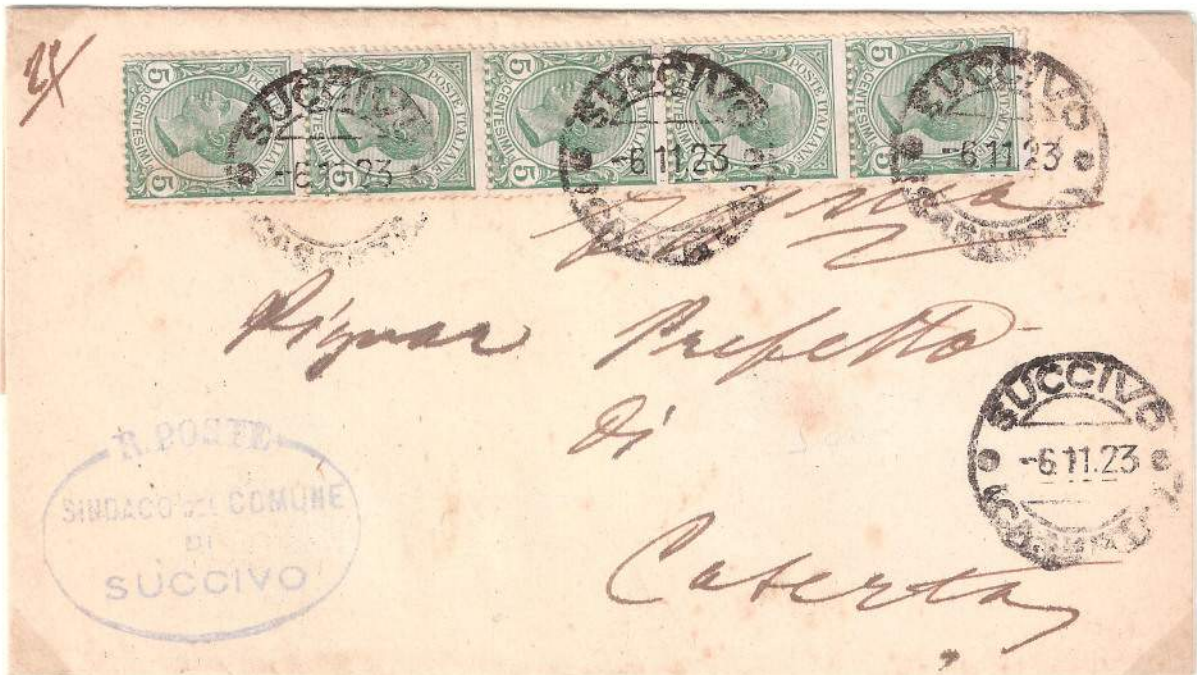 5 CENTESIMI 5 POSTE ITALIANE
5 CENTESIMI 5 POSTE ITALIANE
5 CENTESIMI 5 POSTE ITALIANE
5 CENTESIMI 5 POSTE ITALIANE
5 CENTESIMI 5
SUCCIVO
-6.11.23
SUCCIVO
-6.11.23
SUCCIVO
-6.11.23
Signor Prefetto
di
Caserta
SUCCIVO
-6.11.23
(CASERTA)
R. POSTE
SINDACO DEL COMUNE
DI
SUCCIVO